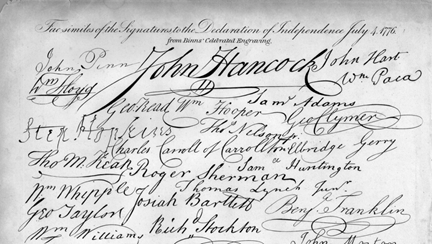 Fac similes of the Signatures to the Declaration of Independence July 4. 1776.
from Binns' Celebrated Engraving.
John Penn John Hancock John Hart
Wm Floyd Wm Paca
Geo Read Wm Hooper Saml Adams
Step Hopkins Thos Nelson jr. Geo Clymer
Charles Carroll of Carrollton Elbridge Gerry
Tho M:Kean Roger Sherman Saml Huntington
Wm Whipple Thomas Lynch Junr.
Geo Taylor Josiah Bartlett Benj Franklin
Wm Williams Richd Stockton John Morton